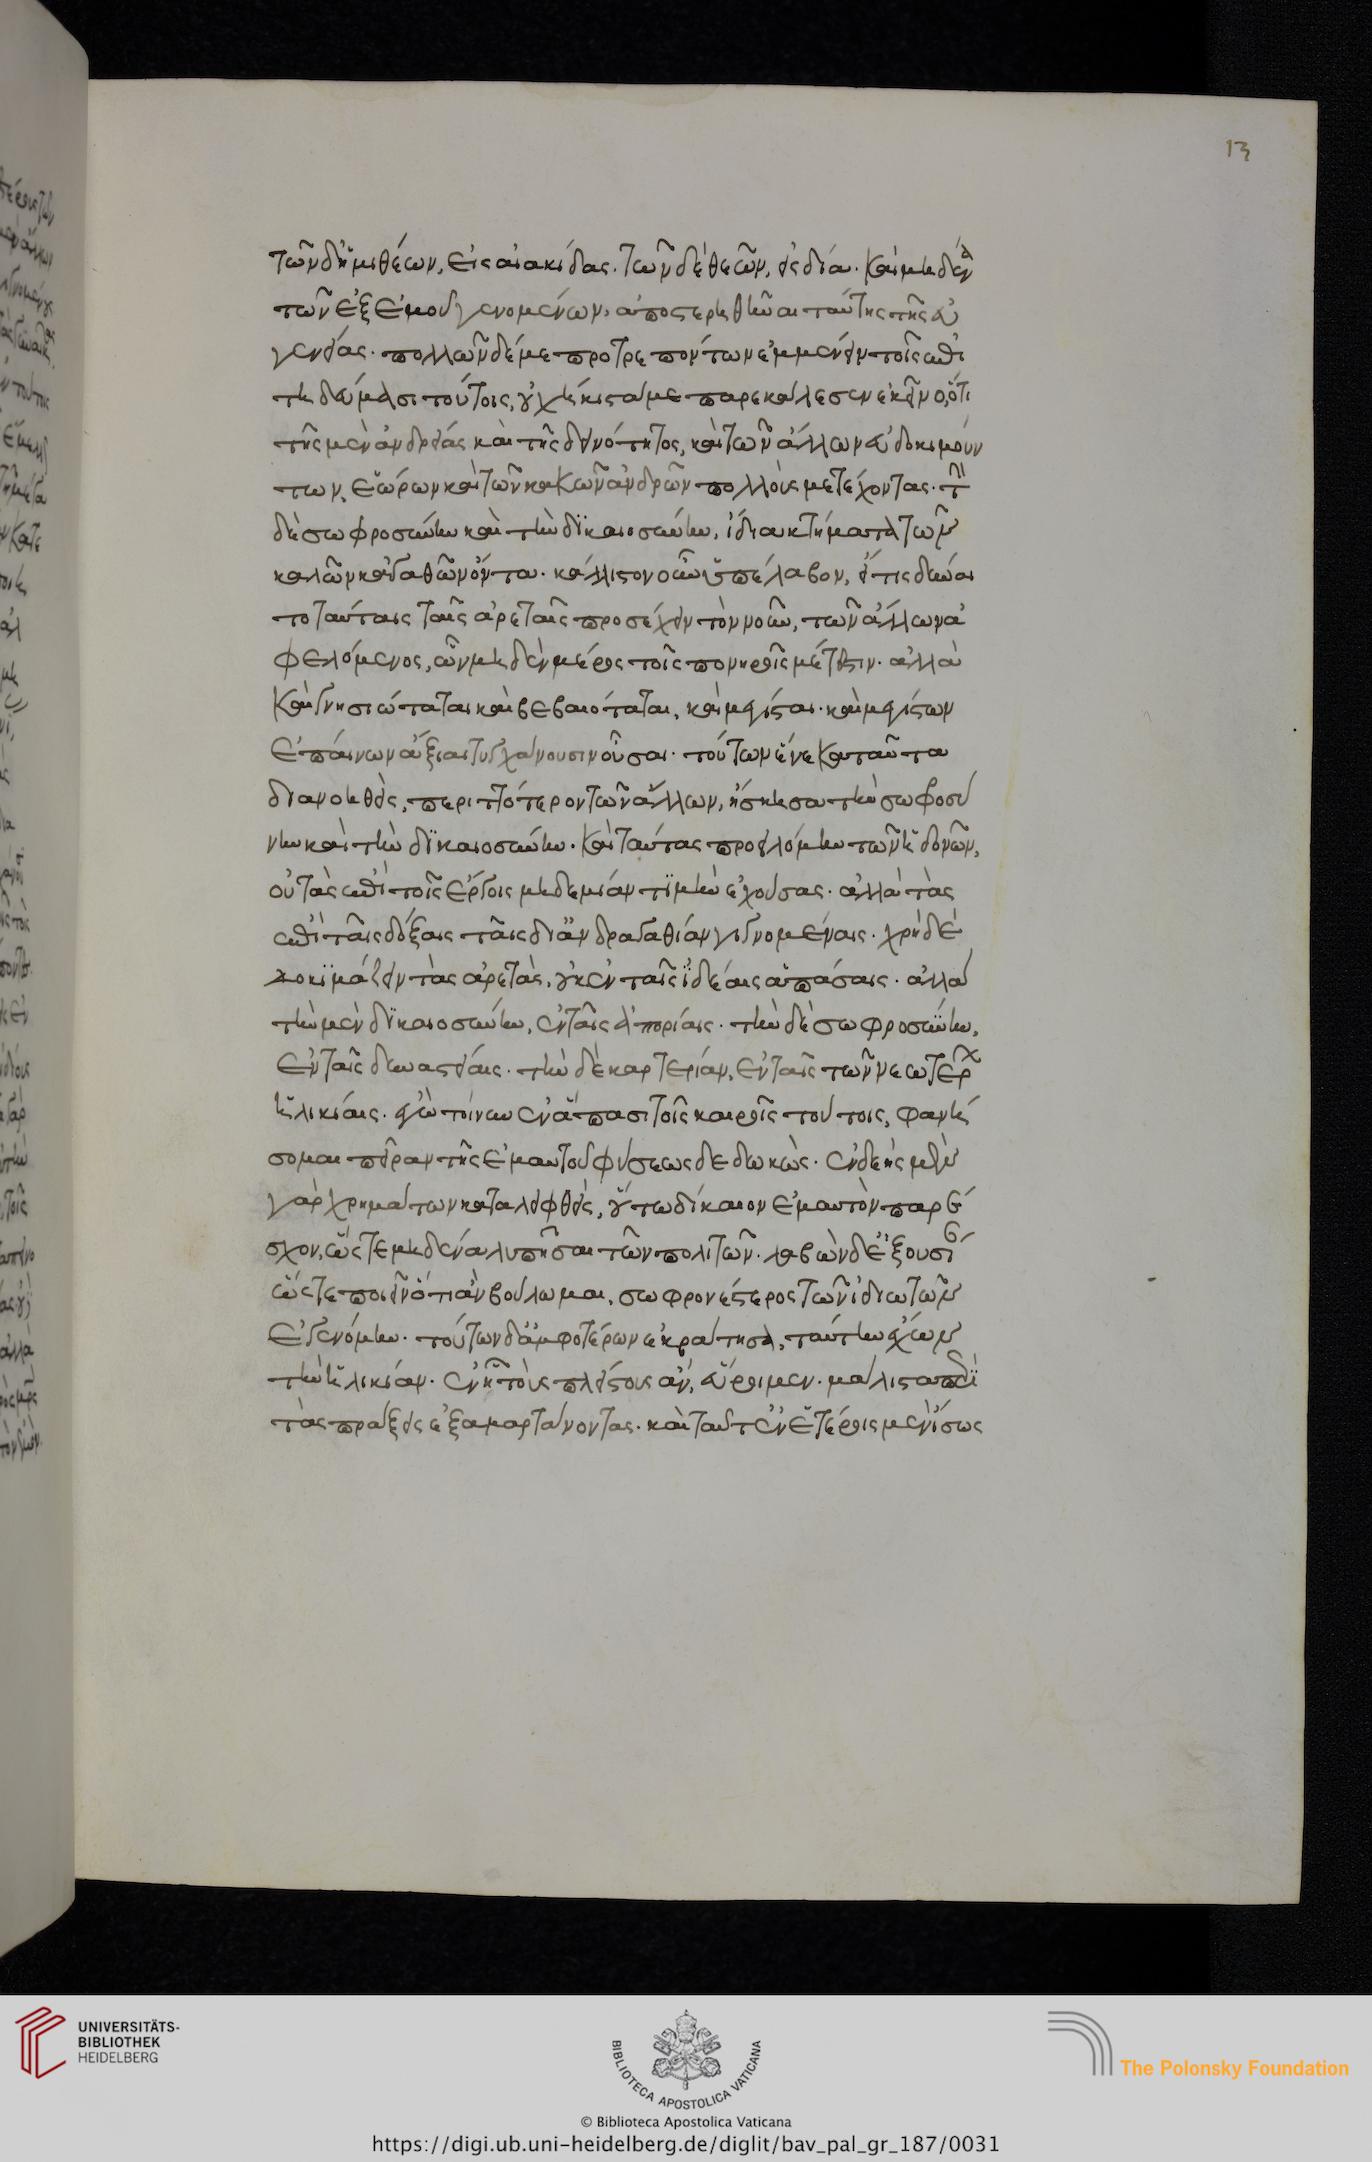 τῶν δ' ἡμιθέων, εἰς αἰακίδας. τῶν δὲ θεῶν, εἰς δία. καὶ μηδένα
τῶν ἐξ ἐμοῦ γενομένων, ἀποστερηθῆναι ταύτης τῆς εὐ
γενείας. πολλῶν δέ με προτρεπόντων ἐμμένειν τοῖς ἐπι
τηδεύμασι τούτοις, οὐχ ἥκιστά με παρεκάλεσεν ἐκεῖνο, ὅτι
τῆς μὲν ἀνδρείας καὶ τῆς δεινότητος, καὶ τῶν ἄλλων εὐδοκιμούν
των, ἑώρων καὶ τῶν κακῶν ἀνδρῶν πολλοὺς μετέχοντας. τὴν
δὲ σωφροσύνην καὶ τὴν δϊκαιοσύνην, ἴδια κτήματα τῶν
καλῶν κἀγαθῶν ὄντα. κάλλιστον οὖν ὑπέλαβον, εἴ τις δύναι
το ταύταις ταῖς ἀρεταῖς προσέχειν τὸν νοῦν, τῶν ἄλλων ἀ
φελόμενος, ὧν μηδὲν μέρος τοῖς πονηροῖς μέτεστιν. ἀλλὰ
καὶ γνησιώταται καὶ βεβαιόταται, καὶ μέγισται. καὶ μεγίστων
ἐπαίνων ἄξιαι τυγχάνουσιν οὖσαι. τούτων ἕνεκα ταῦτα
διανοηθεὶς, περιττότερον τῶν ἄλλων, ἤσκησα τὴν σωφροσύ
νην καὶ τὴν δϊκαιοσύνην. καὶ ταύτας προειλόμην τῶν ἡδονῶν,
οὐ τὰς ἐπὶ τοῖς ἔργοις μηδεμίαν τϊμὴν ἐχούσας. ἀλλὰ τὰς
ἐπὶ ταῖς δόξαις ταῖς δι' ἀνδραγαθίαν γιγνομέναις. χρὴ δὲ
δοκϊμάζειν τὰς ἀρετὰς, οὐκ ἐν ταῖς ἰδέαις ἁπάσαις. ἀλλὰ
τὴν μὲν δϊκαιοσύνην, ἐν ταῖς ἀπορίαις. τὴν δὲ σωφροσύνην,
ἐν ταῖς δυναστείαις. τὴν δὲ καρτερίαν, ἐν ταῖς τῶν νεωτέρων
ἡλικίαις. ἐγὼ τοίνυν ἐν ἅπασι τοῖς καιροῖς τούτοις, φανή
σομαι πεῖραν τῆς ἐμαυτοῦ φύσεως δεδωκὼς. ἐνδεὴς μὲν
γὰρ χρημάτων καταλειφθεὶς, οὕτω δίκαιον ἐμαυτὸν παρέ
σχον, ὥστε μηδένα λυπῆσαι τῶν πολιτῶν. λαβὼν δὲ ἐξουσίαν
ὥστε ποιεῖν ὅτι ἂν βούλωμαι, σωφρονέστερος τῶν ἰδιωτῶν
ἐγενόμην. τούτων δ' ἀμφοτέρων ἐκράτησα, ταύτην ἔχων
τὴν ἡλικίαν. ἐν ᾗ τοὺς πλείστους ἂν, εὕροιμεν. μάλιστα περὶ
τὰς πράξεις ἐξαμαρτάνοντας. καὶ ταῦτ' ἐν ἑτέροις μὲν ἴσως
13
UNIVERSITÄTS-
BIBLIOTHEK
HEIDELBERG
BIBLIOTECA APOSTOLICA VATICANA
© Biblioteca Apostolica Vaticana
The Polonsky Foundation
https://digi.ub.uni-heidelberg.de/diglit/bav_pal_gr_187/0031